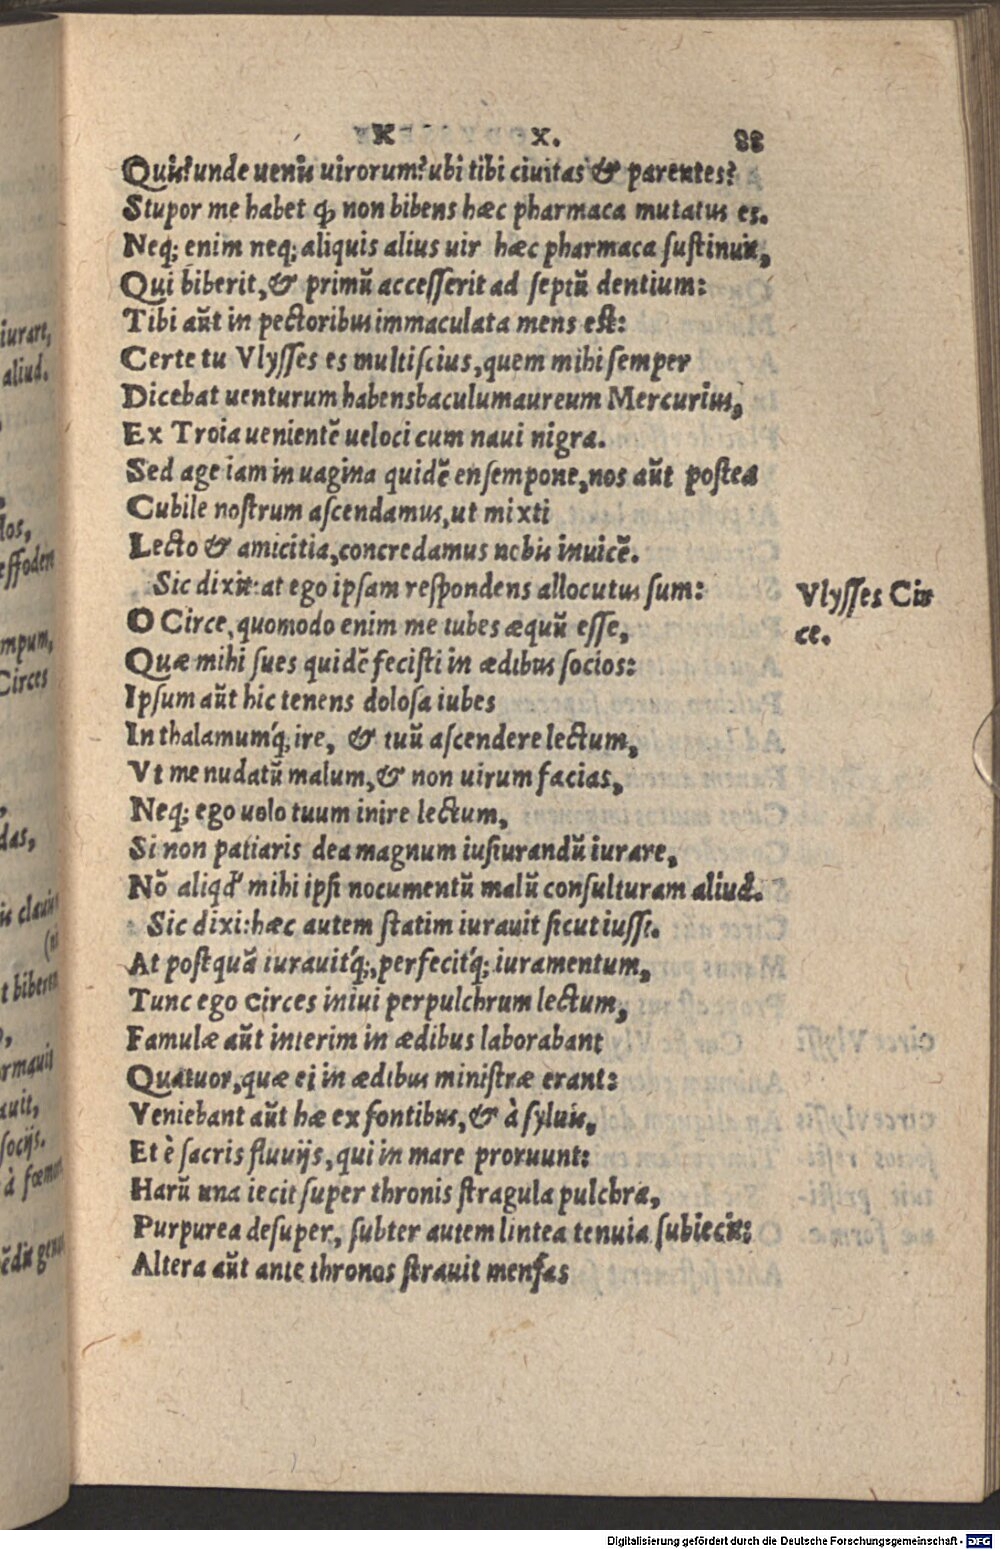 K X. 88
Quis? unde uenis uirorum? ubi tibi ciuitas & parentes?
Stupor me habet ꝙ non bibens hæc pharmaca mutatus es.
Neqꝫ enim neqꝫ aliquis alius uir hæc pharmaca ſuſtinuit,
Qui biberit, & primũ acceſſerit ad ſeptũ dentium:
Tibi aũt in pectoribus immaculata mens eſt:
Certe tu Vlyſſes es multiſcius, quem mihi ſemper
Dicebat uenturum habens baculum aureum Mercurius,
Ex Troia uenientẽ ueloci cum naui nigra.
Sed age iam in uagina quidẽ enſem pone, nos aũt poſtea
Cubile noſtrum aſcendamus, ut mixti
Lecto & amicitia, concredamus nobis inuicẽ.
Sic dixit: at ego ipſam reſpondens allocutus ſum:
Vlyſſes Cir
ce.
O Circe, quomodo enim me iubes æquũ eſſe,
Quæ mihi ſues quidẽ feciſti in ædibus ſocios:
Ipſum aũt hic tenens doloſa iubes
In thalamumq́ꝫ ire, & tuũ aſcendere lectum,
Vt me nudatũ malum, & non uirum facias,
Neqꝫ ego uolo tuum inire lectum,
Si non patiaris dea magnum iuſiurandũ iurare,
Nõ aliqđ mihi ipſi nocumentũ malũ conſulturam aliud.
Sic dixi: hæc autem ſtatim iurauit ſicut iuſſi.
At poſtquã iurauitq́ꝫ, perfecitq́ꝫ iuramentum,
Tunc ego Circes iniui perpulchrum lectum,
Famulæ aũt interim in ædibus laborabant
Quatuor, quæ ei in ædibus miniſtræ erant:
Veniebant aũt hæ ex fontibus, & à ſyluis,
Et è ſacris fluuijs, qui in mare proruunt:
Harũ una iecit ſuper thronis ſtragula pulchra,
Purpurea deſuper, ſubter autem lintea tenuia ſubiecit:
Altera aũt ante thronos ſtrauit menſas
iurare,
aliud.
effoden
Circes
das,
is clauis
t biberen
auit,
ſocijs.
Digitalisierung gefördert durch die Deutsche Forschungsgemeinschaft - DFG